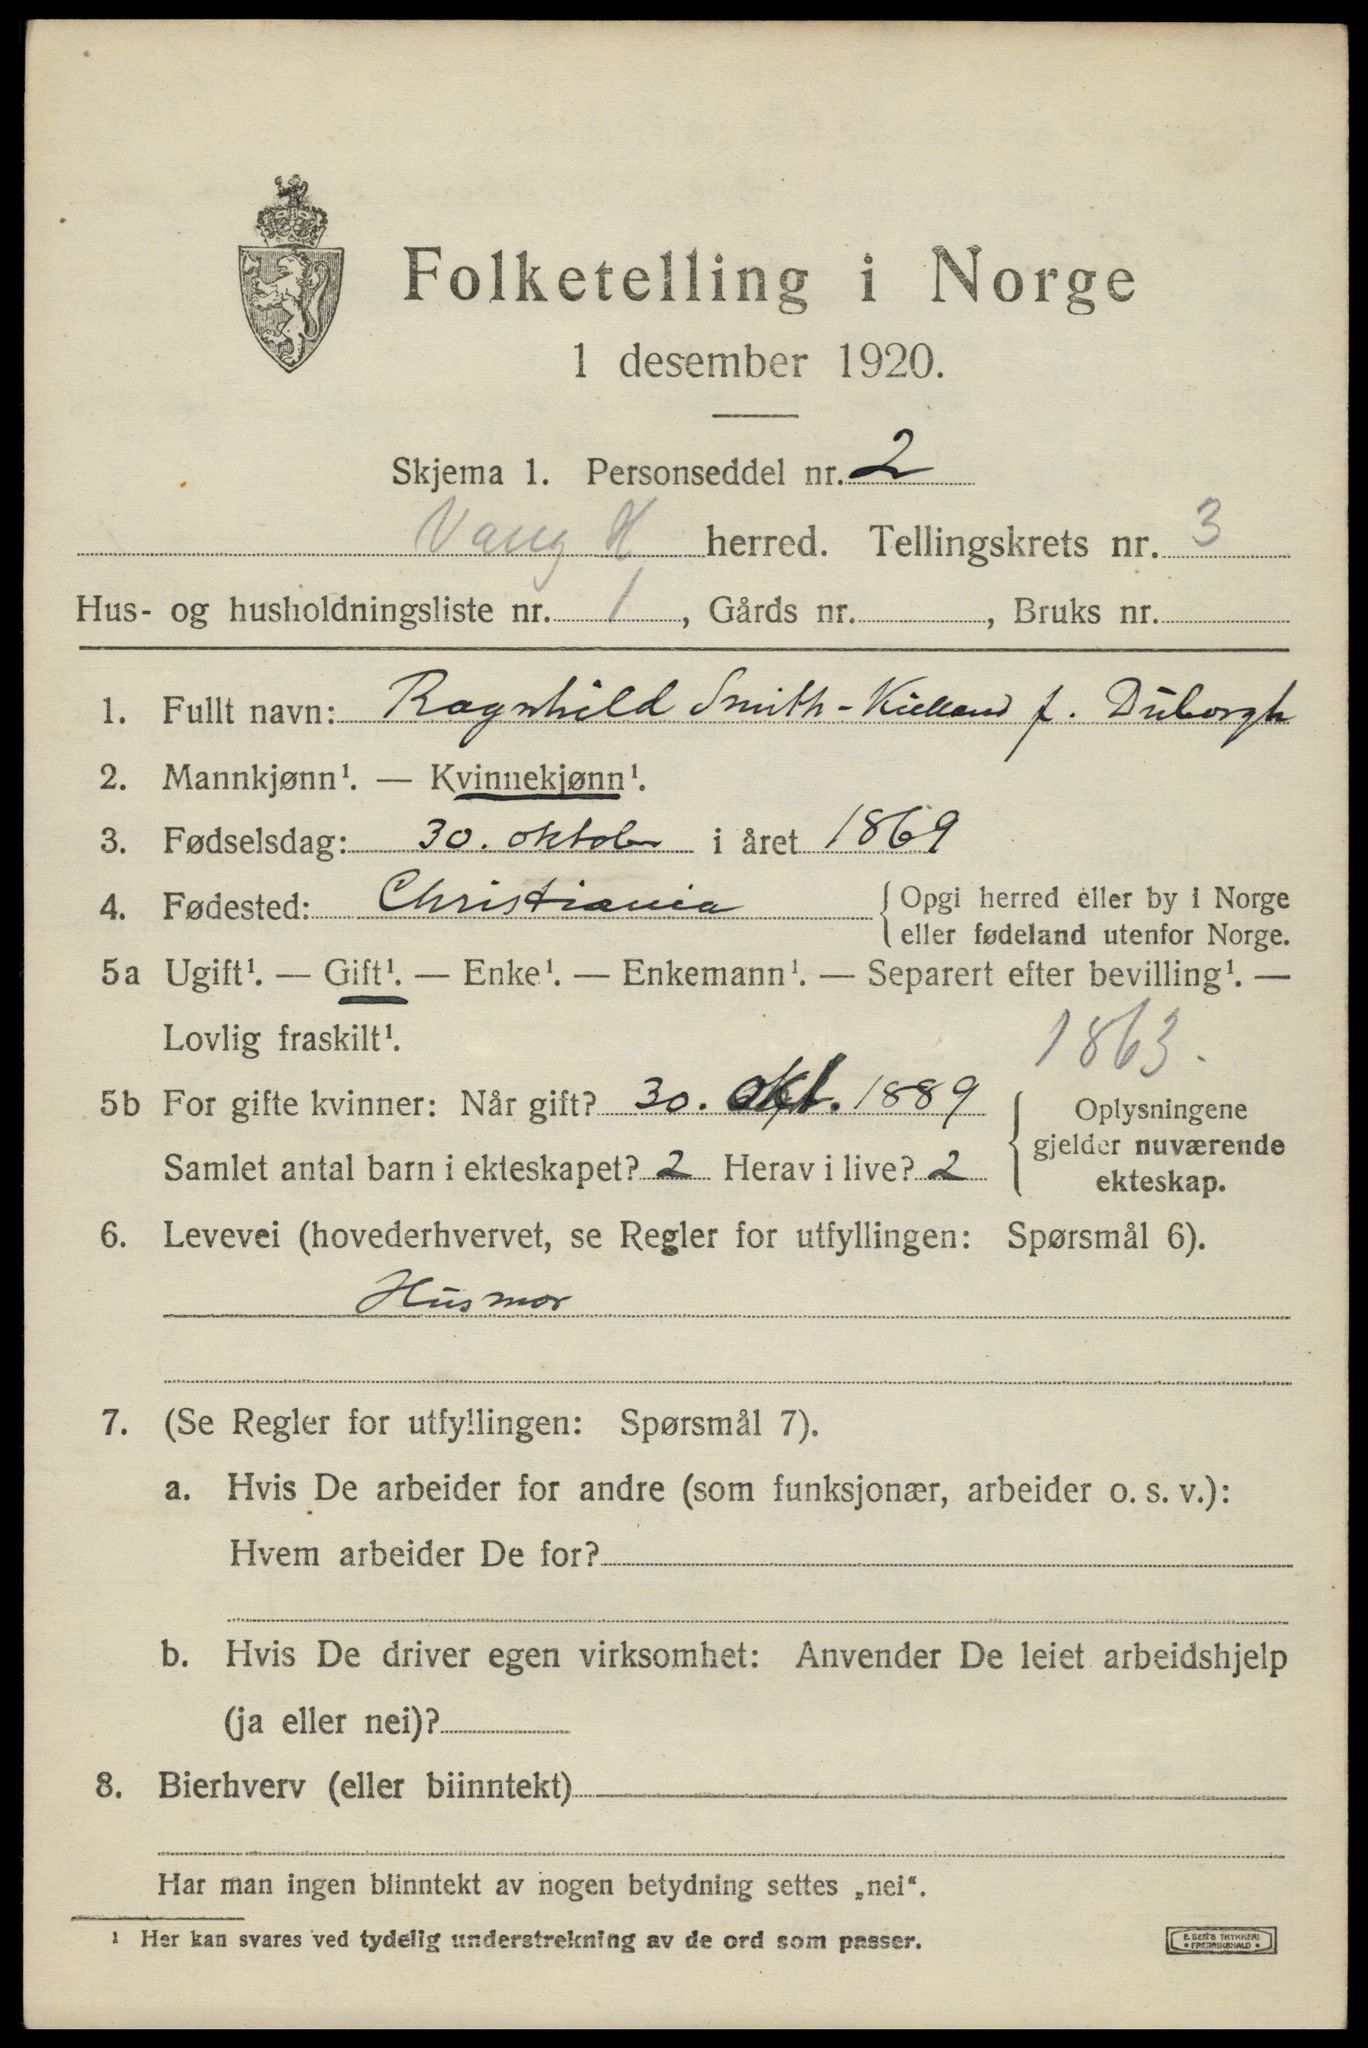 Folketelling i Norge
1 desember 1920.
Skjema 1. Personseddel nr. 2
Vang H herred. Tellingskrets nr. 3
Hus- og husholdningsliste nr. 1, Gårds nr. , Bruks nr.
1. Fullt navn: Ragnhild Smith-Kielland f. Düborgh
2. Mannkjønn¹. — Kvinnekjønn¹.
3. Fødselsdag: 30. oktober i året 1869
4. Fødested: Christiania { Opgi herred eller by i Norge
eller fødeland utenfor Norge.
5a Ugift¹. — Gift¹. — Enke¹. — Enkemann¹. — Separert efter bevilling¹. —
Lovlig fraskilt¹.
1863.
5b For gifte kvinner: Når gift? 30. okt. 1889
Samlet antal barn i ekteskapet? 2 Herav i live? 2
Oplysningene
gjelder nuværende
ekteskap.
6. Levevei (hovederhvervet, se Regler for utfyllingen: Spørsmål 6).
Husmor
7. (Se Regler for utfyllingen: Spørsmål 7).
a. Hvis De arbeider for andre (som funksjonær, arbeider o. s. v.):
Hvem arbeider De for?
b. Hvis De driver egen virksomhet: Anvender De leiet arbeidshjelp
(ja eller nei)?
8. Bierhverv (eller biinntekt)
Har man ingen biinntekt av nogen betydning settes „nei“.
¹ Her kan svares ved tydelig understrekning av de ord som passer.
E. SEM'S TRYKKERI
FREDRIKSHALD